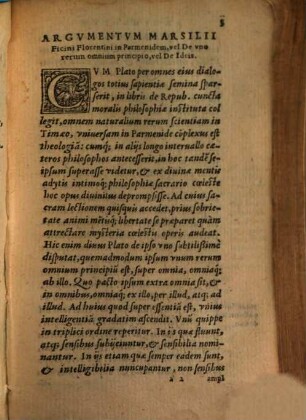 3
ARGVMENTVM MARSILII
Ficini Florentini in Parmenidem, vel De vno
rerum omnium principio, vel De Ideis.
CVM Plato per omnes eius dialo-
gos totius sapientiæ semina spar-
serit, in libris de Repub. cuncta
moralis philosophiæ instituta col
legit, omnem naturalium rerum scientiam in
Timæo, vniuersam in Parmenide cōplexus est
theologiā: cumq; in alijs longo interuallo cæ-
teros philosophos antecesserit, in hoc tandē se-
ipsum superasse videtur, & ex diuinæ mentis
adytis intimoq; philosophiæ sacrario cœleste
hoc opus diuinitus deprompsisse. Ad cuius sa-
cram lectionem quisquis accedet, prius sobrie-
tate animi mētisq; libertate se præparet quàm
attrectare mysteria cœlestis operis audeat.
Hic enim diuus Plato de ipso vno subtilissimè
disputat, quemadmodum ipsum vnum rerum
omnium principiū est, super omnia, omniaq;
ab illo. Quo pacto ipsum extra omnia sit, &
in omnibus, omniaq; ex illo, per illud, atq; ad
illud. Ad huius quod super essentiā est, vnius
intelligentiā gradatim ascendit. Vnū quippe
in triplici ordine reperitur. In ijs quæ fluunt,
atq; sensibus subijciuntur, & sensibilia nomi-
nantur. In ijs etiam quæ semper eadem sunt,
& intelligibilia nuncupantur, non sensibus
a 2 ampl